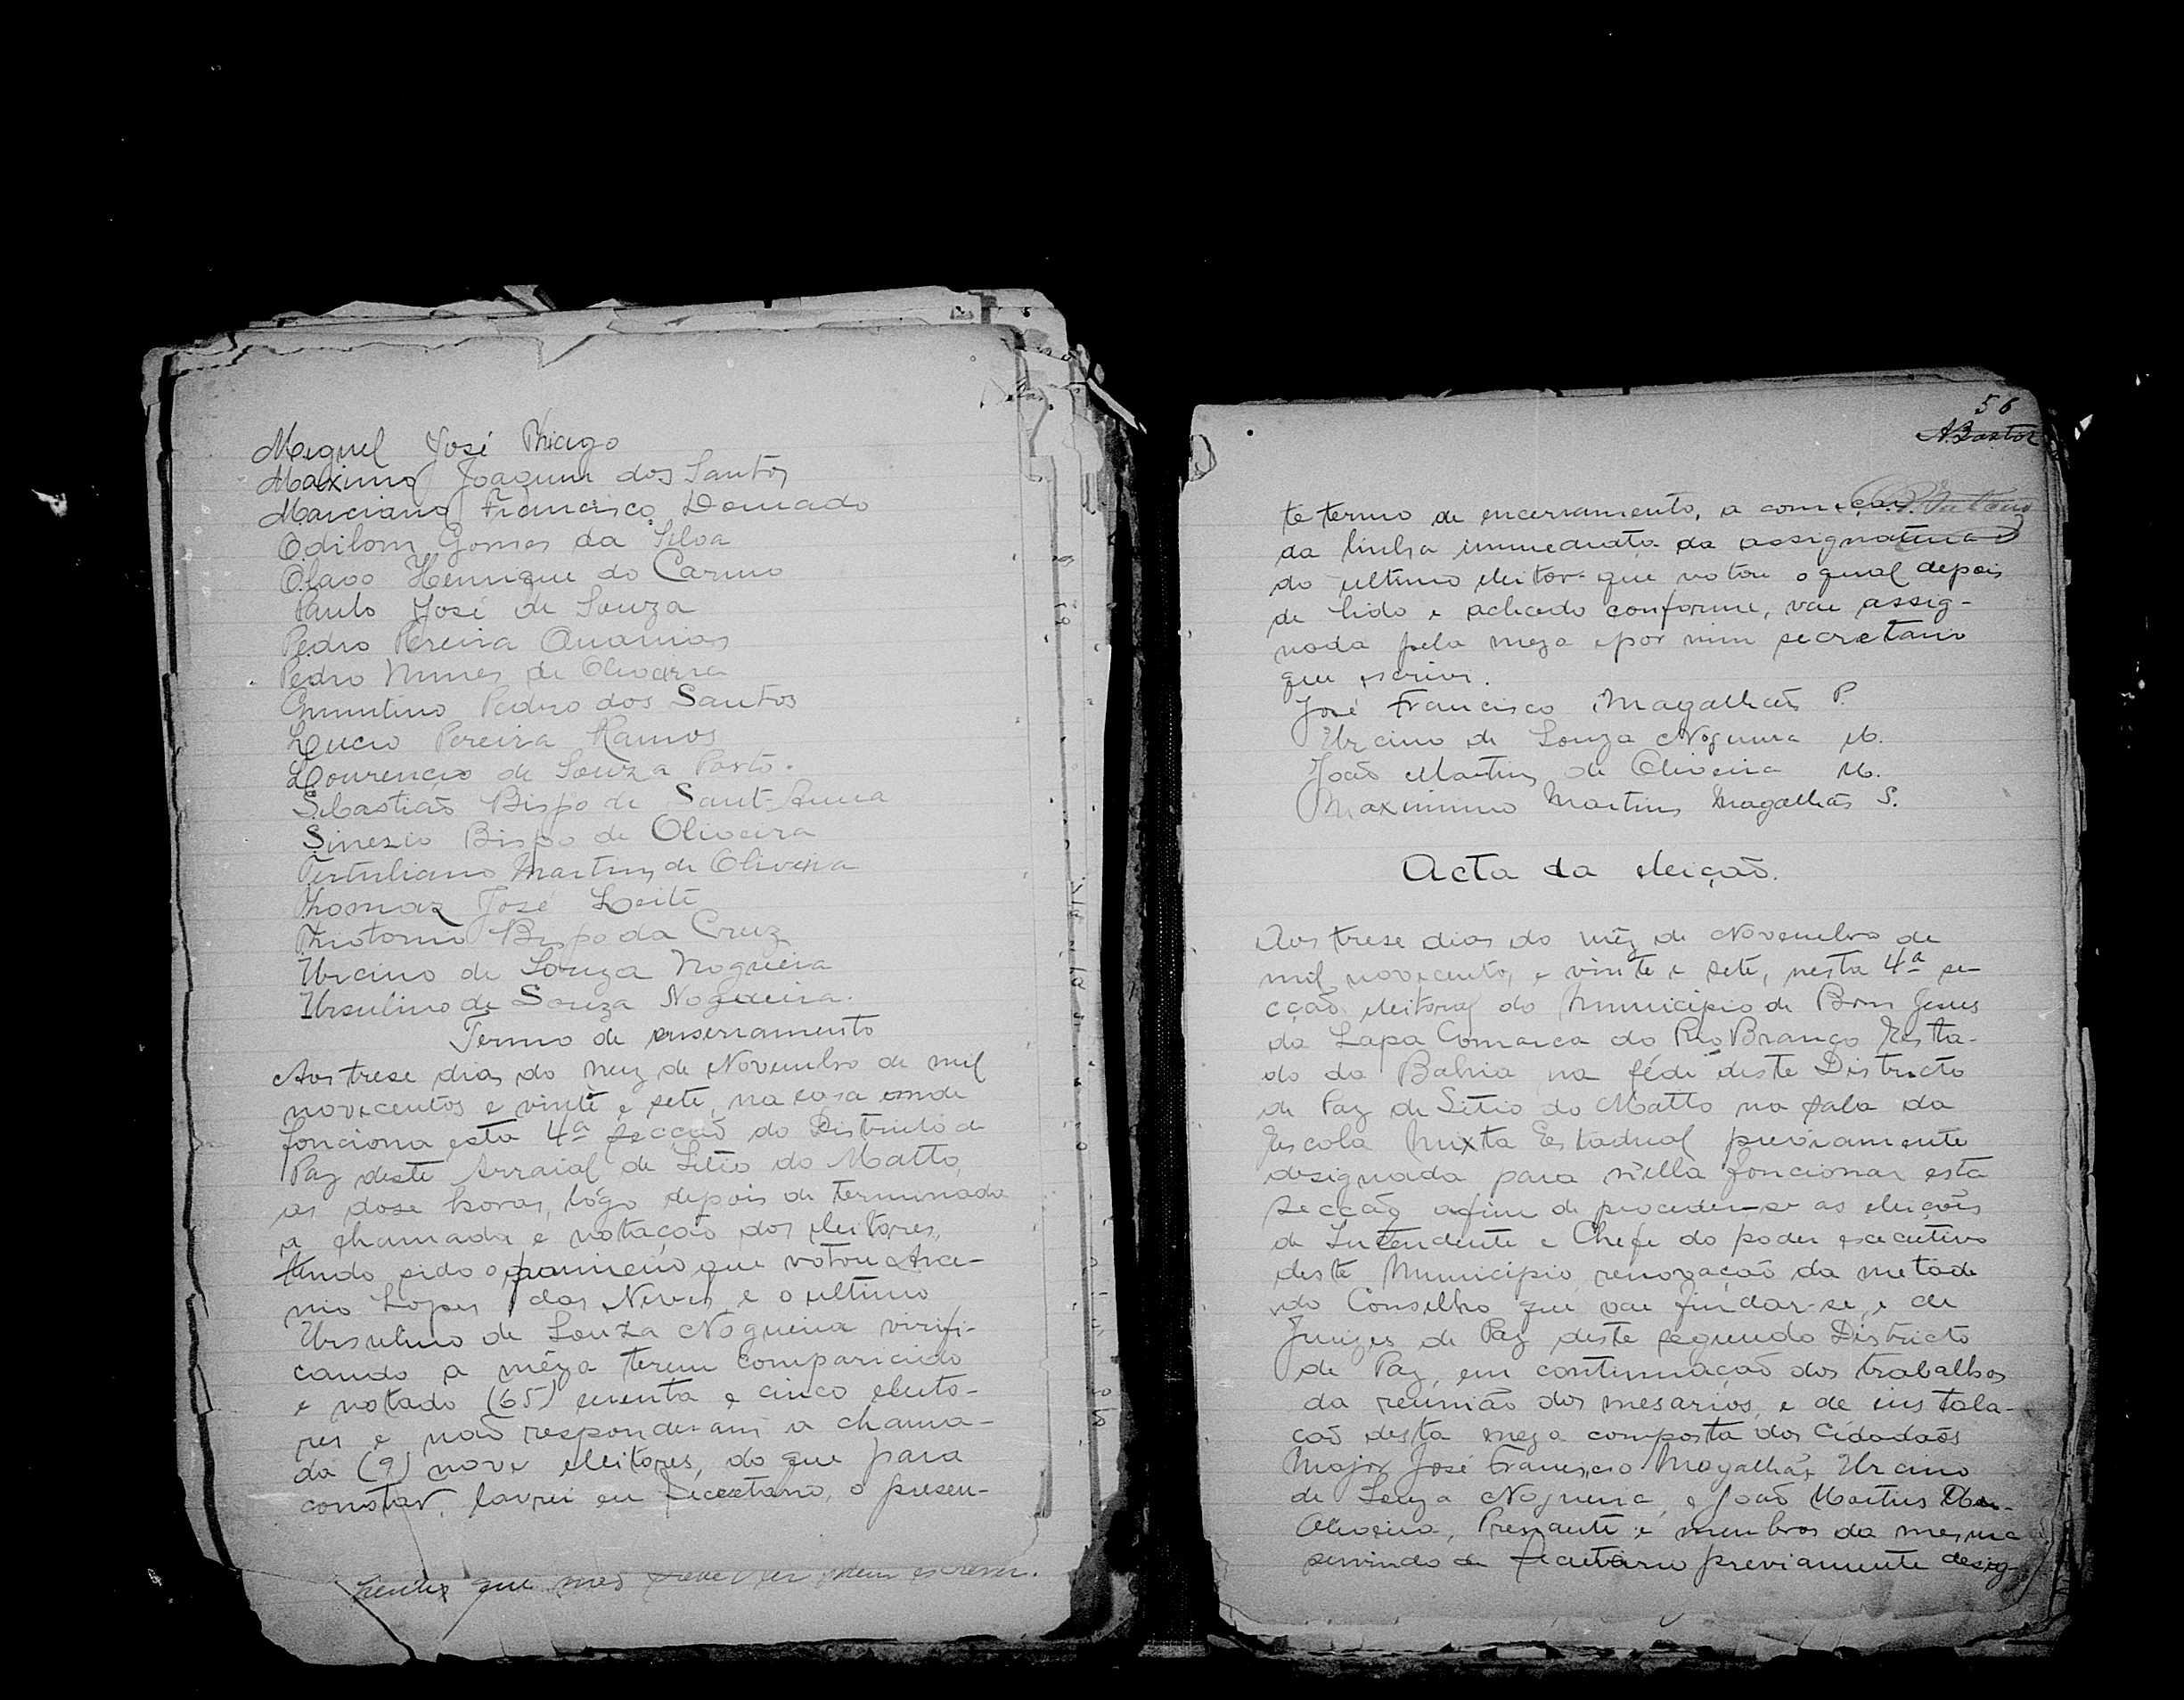 Miguel José Thiago
Maximo Joaquim dos Santos
Marciano Francisco Dourado
Odilom Gomes da Silva
Olavo Henrique do Carmo
Paulo José de Souza
Pedro Pereira Ananias
Pedro Nunes de Oliveira
Pedro dos Santos
Lucio Pereira Ramos
Lourenço de Souza Porto.
Sebastião Bispo de Sant-Anna
Sinezio Bispo de Oliveira
Tertuliano Martins de Oliveira
Thomaz José Leite
Thiotonio Bispo da Cruz
Urcino de Souza Nogueira
Ursulino de Souza Nogueira.
Termo de enserramento
Aos trese dias do mez de Novembro de mil
novecentos e vinte e sete, na casa onde
fonciona esta 4ª secção do Districto de
Paz deste Arraial de Sitio do Matto,
as dose horas, lógo depois de terminada
a chamada e votação dos eleitores,
tendo sido o primeiro que votou Arce-
nio Lopes das Neves e o ultimo
Ursulino de Souza Nogueira virifi-
cando a mêza terem comparicido
e votado (65) cecenta e cinco eleito-
res e não responderam a chama-
da (9) nove eleitores, do que para
constar, lavrei eu Secretario, o presen-
que mes
56
N. Bastos
te termo de encerramento, a começar
da linha immediata da assignatura
do ultimo eleitor que votou o qual depois
de lido e achado conforme, vae assig-
nada pela meza e por mim secretario
que escrivi.
José Francisco Magalhães P.
Urcino de Souza Nogueira M.
João Martins de Oliveira M.
Maximino Martins Magalhães S.
Acta da eleição.
Aos trese dias do mêz de Novembro de
mil novecentos e vinte e sete, nesta 4ª se-
cção eleitoral do Municipio de Bom Jesus
da Lapa Comarca do Rio Branco Esta-
do da Bahia na séde deste Districto
de Paz de Sitio do Matto na sala da
Escola Mixta Estadual previamente
designada para n'ella foncionar esta
secção afim de proceder-se as eleições
de Intendente e Chefe do poder executivo
deste Municipio, renovação da metade
do Conselho que vae findar-se, e de
Juizes de Paz deste segundo Districto
de Paz, em continuação dos trabalhos
da reunião dos mesarios, e de instala-
ção desta meza composta dos Cidadãos
Major José Francisco Magalhães, Urcino
de Souza Nogueira, e João Martins de
Oliveira, e membros da mesma
servindo de Secretario previamente desig-